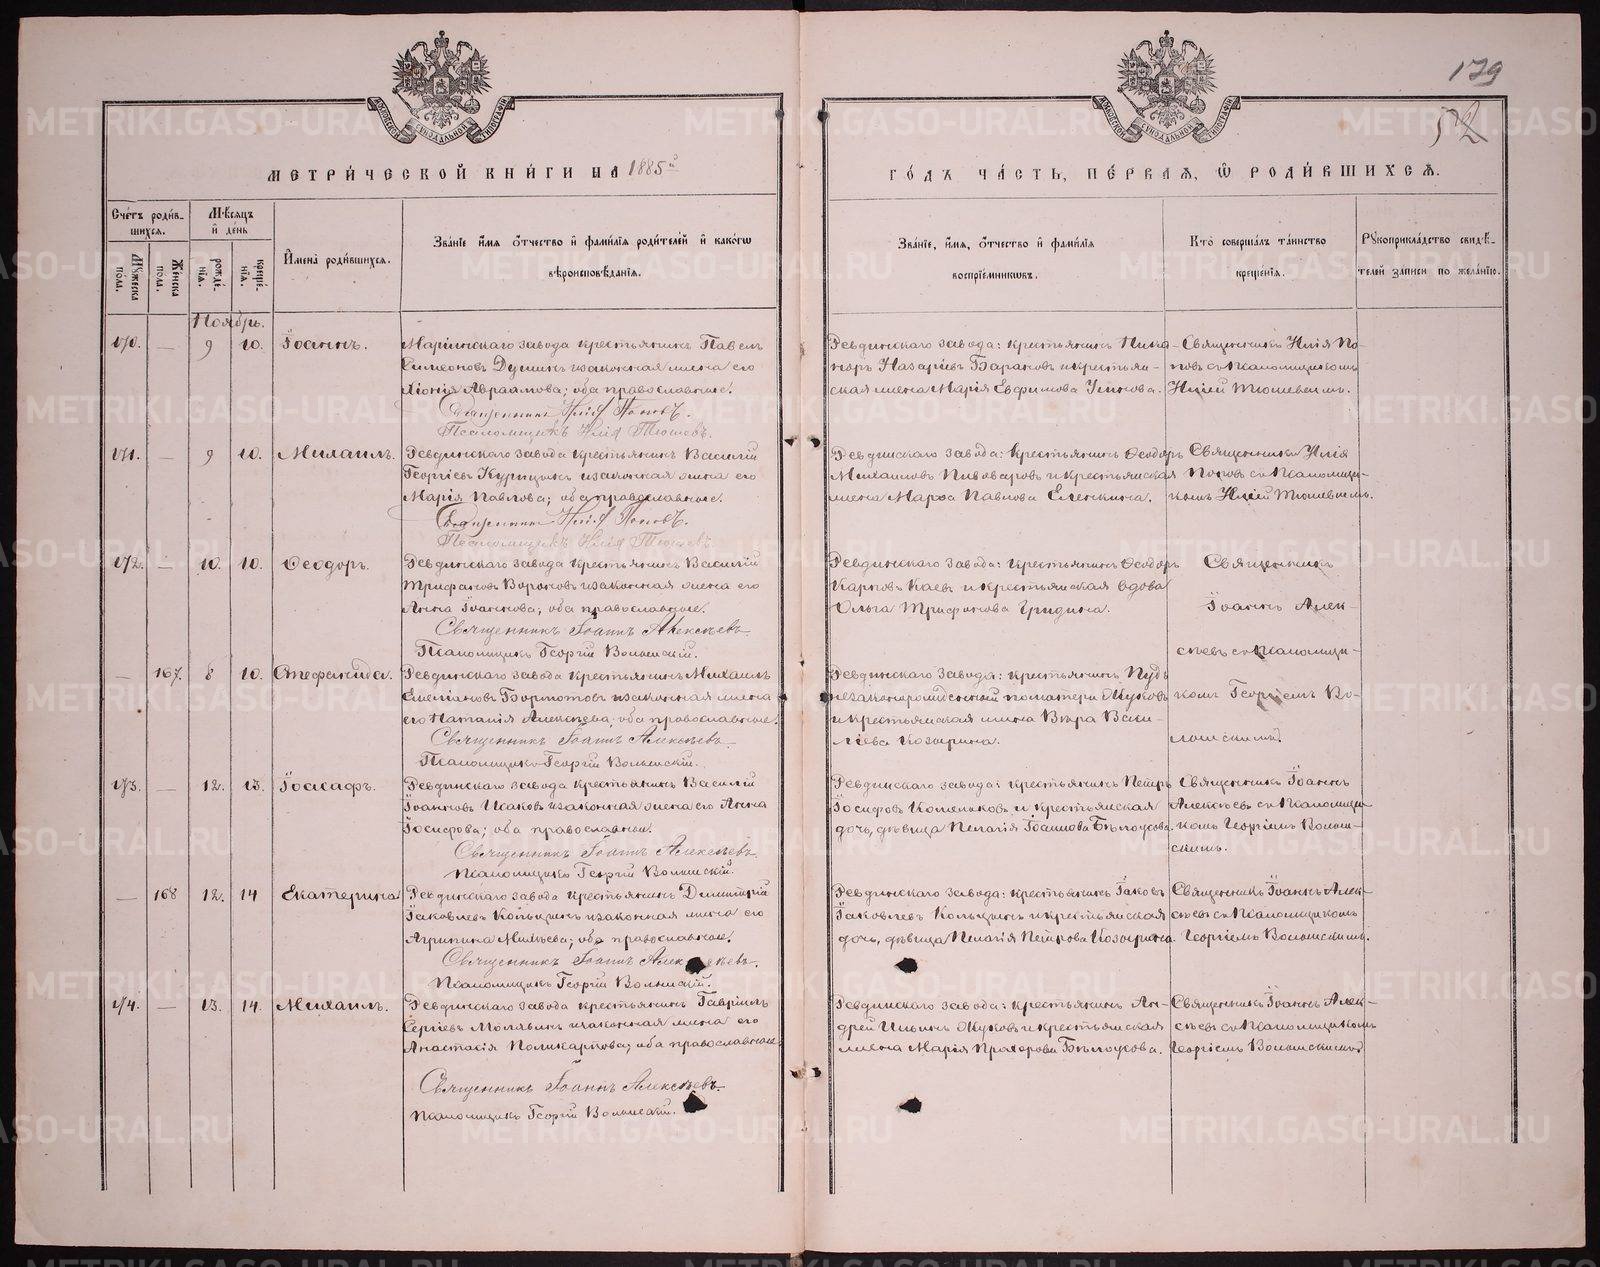 179
52
МЕТРИ́ЧЕСКОЙ КНИ́ГИ НА 1885й
ГО́ДЪ ЧА́СТЬ, ПЕ́РВАЯ, Ѡ РОДИ́ВШИХСѦ.
Сче́тъ роди́в-
шихся.
Мѣ́сяцъ
и҆ де́нь
Мꙋ́жеска
по́ла.
Же́нска
по́ла.
рожде́-
нїѧ.
креще́-
нїѧ.
И҆мена̀ роди́вшихсѧ.
Зва́нїе и҆́мѧ ѻ҆́тчество и҆ фами́лїѧ роди́телей и҆ како́гѡ
вѣроисповѣ́данїѧ.
Зва́нїе, и҆́мѧ, ѻ҆́тчество и҆ фами́лїѧ
воспрїе́мникѡвъ.
Кто̀ соверша́лъ та́инство
креще́нїѧ.
Рꙋкоприкла́дство свидѣ́-
телей за́писи по жела́нїю.
Ноябрь.
170. — 9 10. Іоаннъ.
Маріинскаго завода крестьянинъ Павелъ
Симеоновъ Душинъ и законная жена его
Хіонія Авраамова; оба православные.
Священникъ Илія Поповъ.
Псаломщикъ Илія Тюшевъ.
Ревдинскаго завода: крестьянинъ Ника-
норъ Назаріевъ Барановъ и крестьян-
ская жена Марія Евфимова Уткова.
Священникъ Илія По-
повъ съ Псаломщикомъ
Иліей Тюшевымъ.
171. — 9 10. Михаилъ.
Ревдинскаго завода крестьянинъ Василій
Георгіевъ Курицынъ и законная жена его
Марія Павлова; оба православные.
Священникъ Илія Поповъ.
Псаломщикъ Илія Тюшевъ.
Ревдинскаго завода: крестьянинъ Ѳеодоръ
Михаиловъ Пивоваровъ и крестьянская
жена Марѳа Павлова Еленкина.
Священникъ Илія
Поповъ съ Псаломщи-
комъ Иліей Тюшевымъ.
172. — 10. 10. Ѳеодоръ.
Ревдинскаго завода крестьянинъ Василій
Трифоновъ Вороновъ и законная жена его
Анна Іоаннова; оба православные.
Священникъ Іоаннъ Алексѣевъ
Псаломщикъ Георгій Волынскій.
Ревдинскаго завода: крестьянинъ Ѳеодоръ
Карповъ Каевъ и крестьянская вдова
Ольга Трифонова Гридина.
Священникъ
Іоаннъ Алек-
сѣевъ съ Псаломщи-
комъ Георгіемъ Во-
лынскимъ.
— 167. 8 10. Стефанида.
Ревдинскаго завода крестьянинъ Михаилъ
Емеліановъ Бормотовъ и законная жена
его Наталія Алексѣева; оба православные.
Священникъ Іоаннъ Алексѣевъ.
Псаломщикъ Георгій Волынскій.
Ревдинскаго завода: крестьянинъ Пудъ
незаконнорожденный по матери Жуковъ
и крестьянская жена Вѣра Васи-
ліева Козырина.
173. — 12. 13. Іоасафъ.
Ревдинскаго завода крестьянинъ Василій
Іоанновъ Исаковъ и законная жена его Анна
Іосифова; оба православные.
Священникъ Іоаннъ Алексѣевъ.
Псаломщикъ Георгій Волынскій.
Ревдинскаго завода: крестьянинъ Петръ
Іосифовъ Кошениковъ и крестьянская
дочь, дѣвица Пелагія Іоаннова Бѣлоусова.
Священникъ Іоаннъ
Алексѣевъ съ Псаломщи-
комъ Георгіемъ Волын-
скимъ.
— 168 12. 14 Екатерина
Ревдинскаго завода крестьянинъ Димитрій
Іаковлевъ Кольцинъ и законная жена его
Агрипина Михѣева; оба православные.
Священникъ Іоаннъ Алексѣевъ.
Псаломщикъ Георгій Волынскій.
Ревдинскаго завода: крестьянинъ Іаковъ
Іаковлевъ Кольцинъ и крестьянская
дочь, дѣвица Пелагія Петрова Козырина.
Священникъ Іоаннъ Алек-
сѣевъ съ Псаломщикомъ
Георгіемъ Волынскимъ.
174. — 13. 14. Михаилъ.
Ревдинскаго завода крестьянинъ Гавріилъ
Сергіевъ Молявинъ и законная жена его
Анастасія Поликарпова; оба православные.
Священникъ Іоаннъ Алексѣевъ.
Псаломщикъ Георгій Волынскій.
Ревдинскаго завода: крестьянинъ Ан-
дрей Ильинъ Жуковъ и крестьянская
жена Марія Прохорова Бѣлоусова.
Священникъ Іоаннъ Алек-
сѣевъ съ Псаломщикомъ
Георгіемъ Волынскимъ.
METRIKI.GASO-URAL.RU